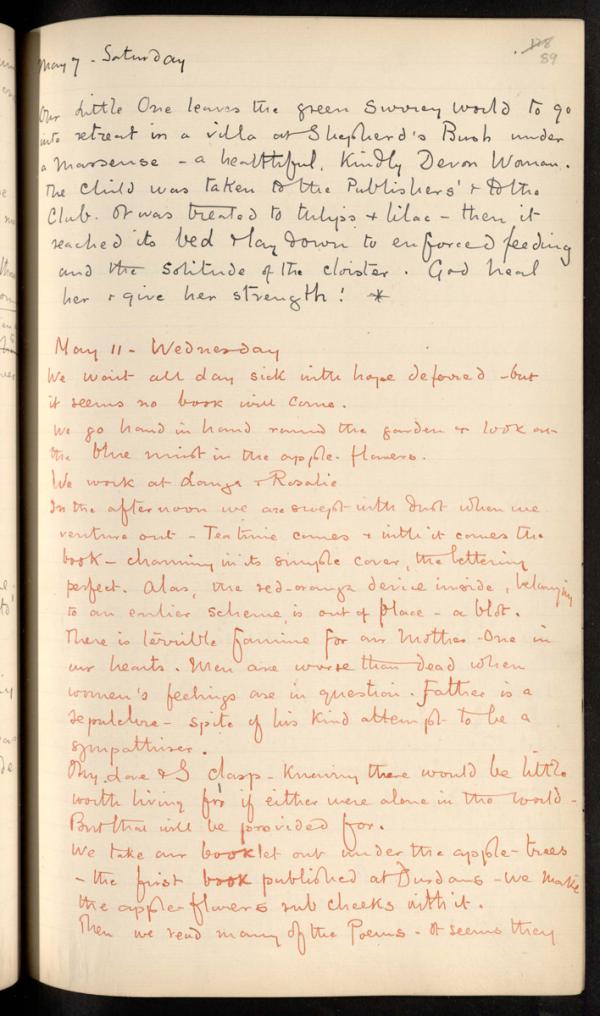 128
89
May 7 - Saturday
Our Little One leaves the green Surrey world to go
into retreat in a villa at Shepherd's Bush under
a Marsense - a healthful, kindly Devon Woman.
The Child was taken to the Publishers' & to the
Club. It was treated to tulips & lilac - then it
reached its bed & lay down to enforced feeding
and the solitude of the cloister. God heal
her & give her strength! *
May 11 - Wednesday
We wait all day sick with hope deferred - but
it seems no book will come.
We go hand in hand round the garden & look on
the blue mist in the apple-flowers.
We work at & Rosalie
In the afternoon we are swept with dust when we
venture out - Tea time comes & with it comes the
book - charming in its simple cover, the lettering
perfect. Alas, the red-orange device inside, belonging
to an earlier scheme, is out of place - a blot.
There is terrible famine for our Mother-One in
our hearts. Men are worse than dead when
women's feelings are in question. Father is a
sepulchre - spite of his kind attempt to be a
sympathiser.
My Love & I clasp - knowing there would be little
worth living for if either were alone in the world -
But that will be provided for.
We take our booklet out under the apple-trees
- the first book published at Durdans - we make
the apple-flowers rub cheeks with it.
Then we read many of the Poems - it seems they